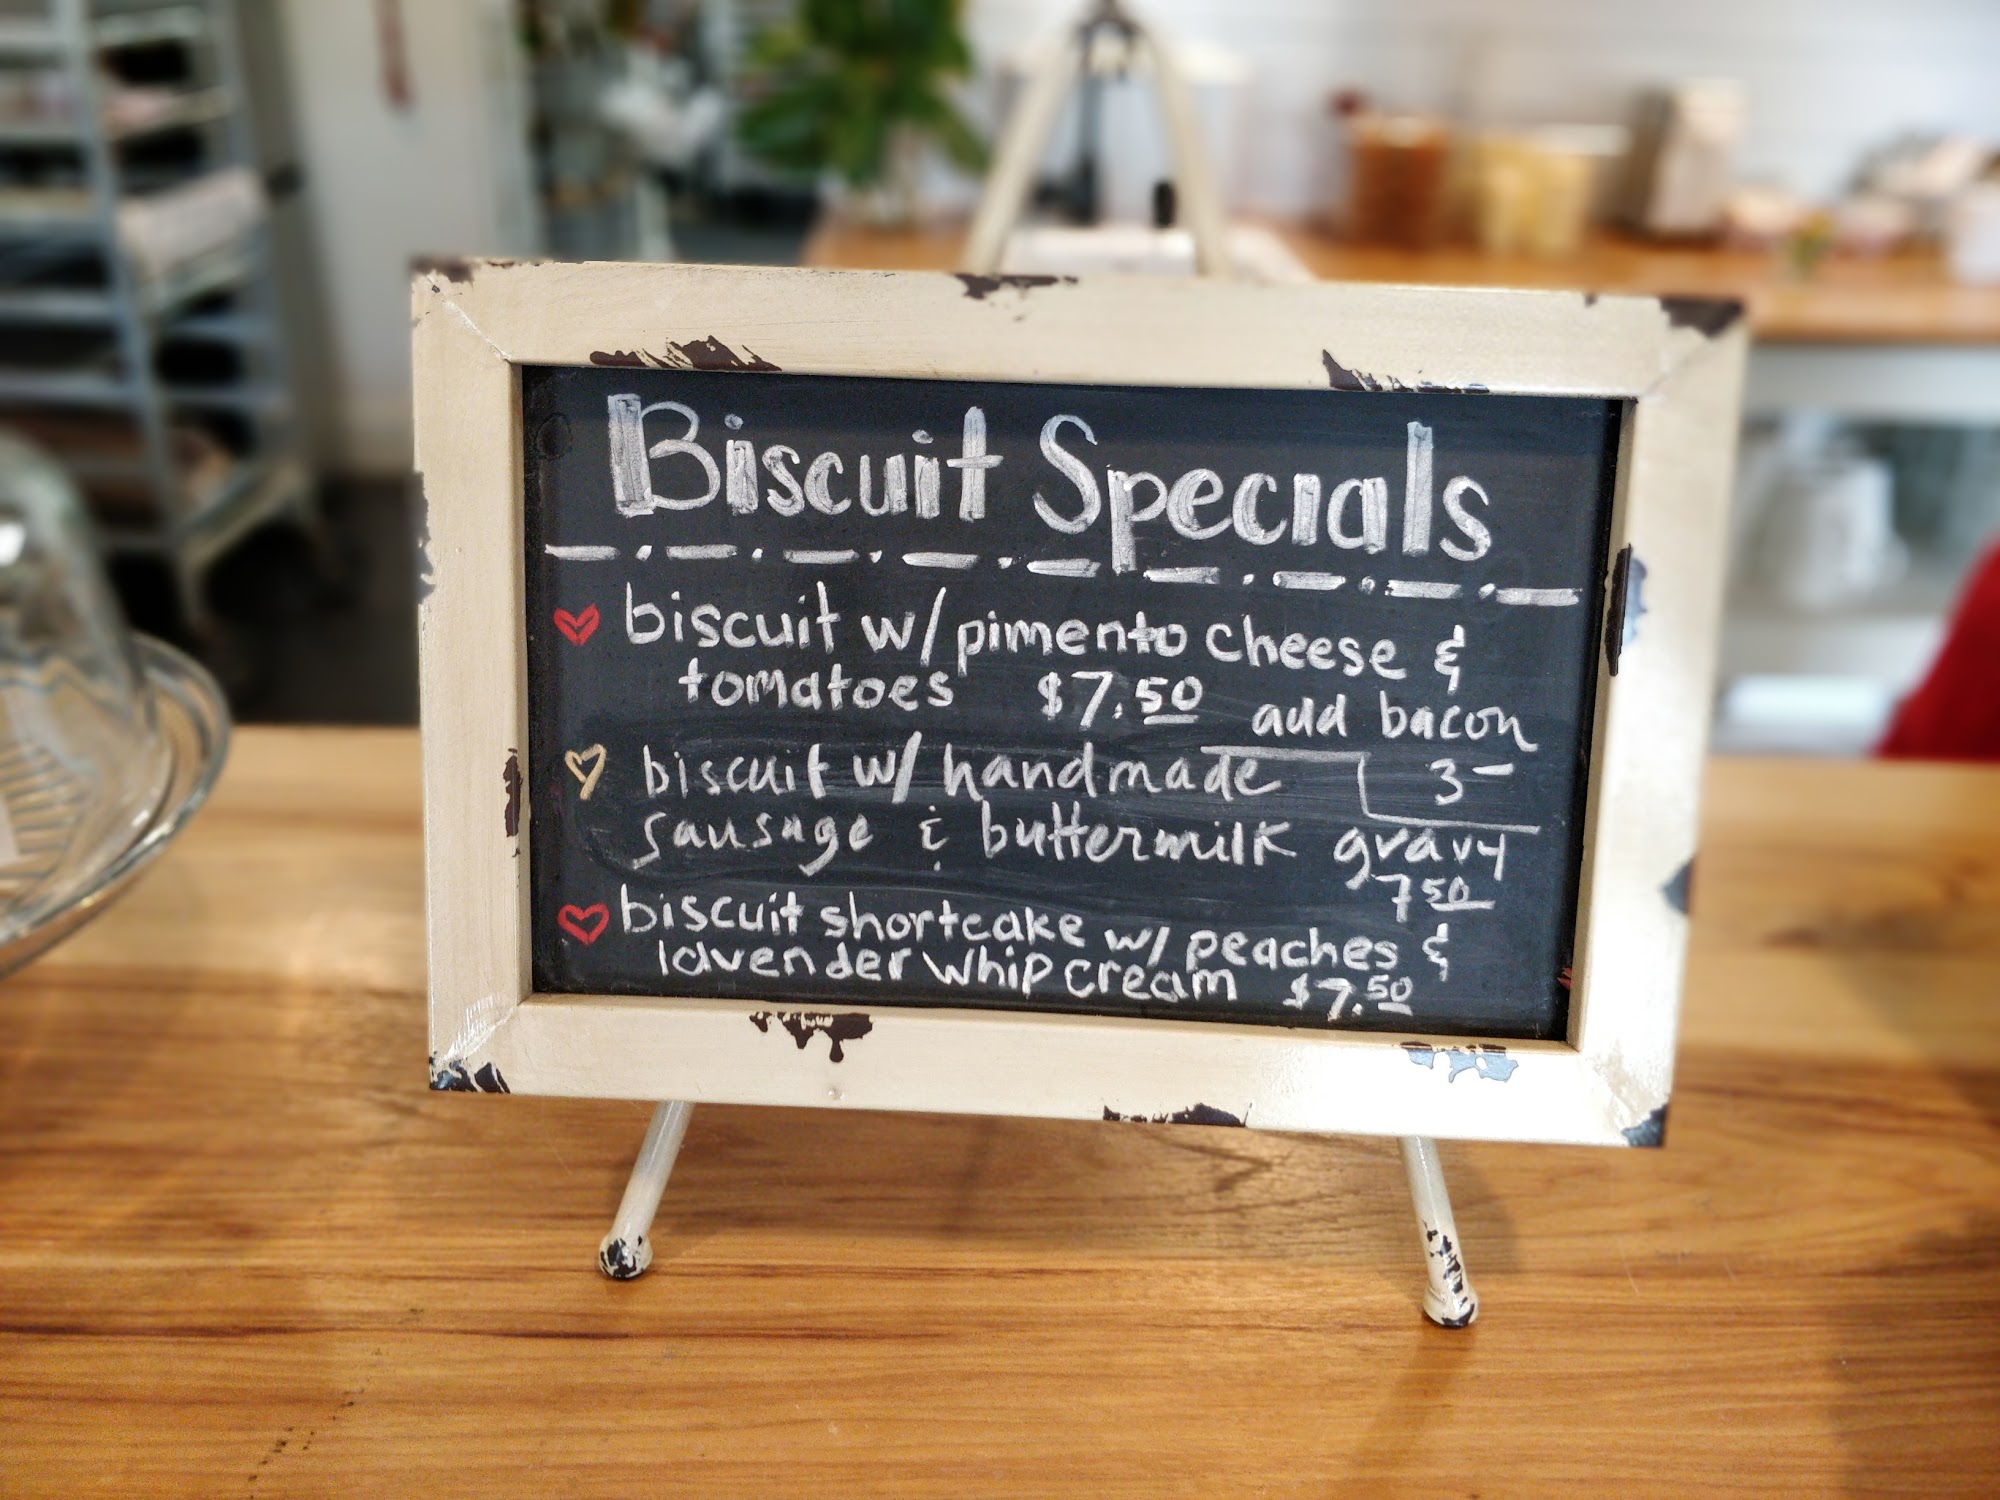 Biscuit Specials
biscuit w/ pimento cheese &
tomatoes $7.50
add bacon
3-
biscuit w/ handmade
sausage & buttermilk gravy
7 50
biscuit shortcake w/ peaches &
lavender whip cream $7.50